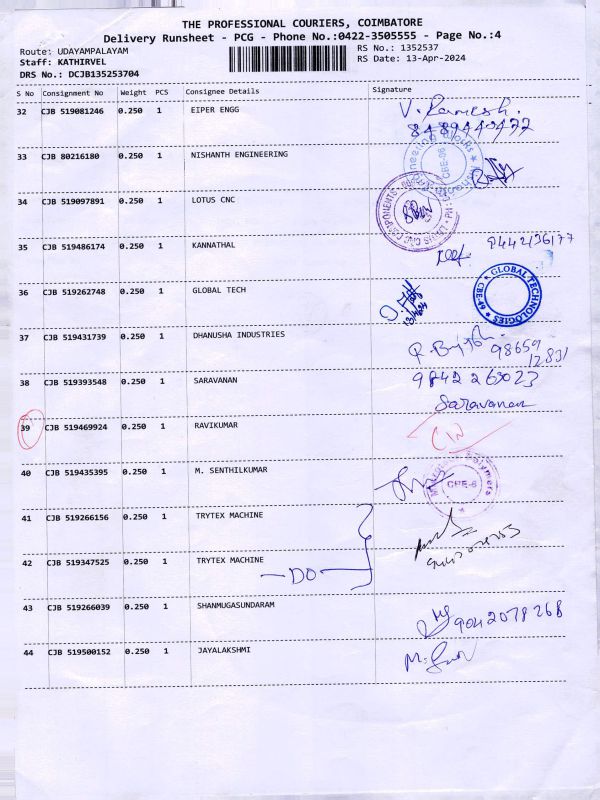 THE PROFESSIONAL COURIERS, COIMBATORE
Delivery Runsheet - PCG - Phone No.:0422-3505555 - Page No.:4
Route: UDAYAMPALAYAM
RS No.: 1352537
Staff: KATHIRVEL
RS Date: 13-Apr-2024
DRS No.: DCJB135253704
S No Consignment No Weight PCS Consignee Details Signature
32 CJB 519081246 0.250 1 EIPER ENGG V. Ramesh.
8489440477
33 CJB 80216180 0.250 1 NISHANTH ENGINEERING
CBE-06
34 CJB 519097891 0.250 1 LOTUS CNC
LOTUS CNC COMPONENTS
35 CJB 519486174 0.250 1 KANNATHAL 9442136177
36 CJB 519262748 0.250 1 GLOBAL TECH
GLOBAL TECHNOLOGIES
37 CJB 519431739 0.250 1 DHANUSHA INDUSTRIES
98659
12831
38 CJB 519393548 0.250 1 SARAVANAN 9842263023
Saravanan
39 CJB 519469924 0.250 1 RAVIKUMAR
40 CJB 519435395 0.250 1 M. SENTHILKUMAR
CBE-6
41 CJB 519266156 0.250 1 TRYTEX MACHINE
42 CJB 519347525 0.250 1 TRYTEX MACHINE
DO
43 CJB 519266039 0.250 1 SHANMUGASUNDARAM
9042078268
44 CJB 519500152 0.250 1 JAYALAKSHMI